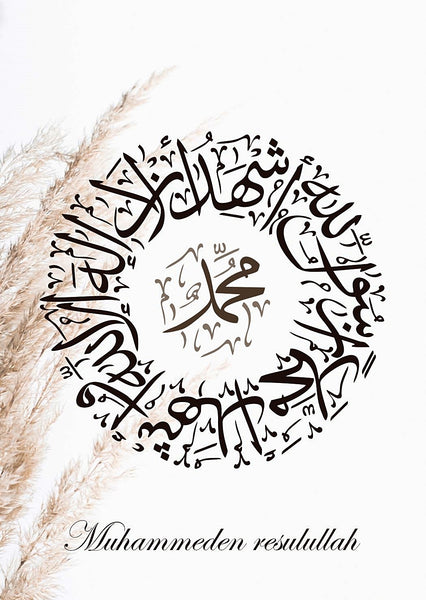 أشهد أن لا إله إلا الله وأشهد أن محمداً رسول الله
محمد
Muhammeden resulullah